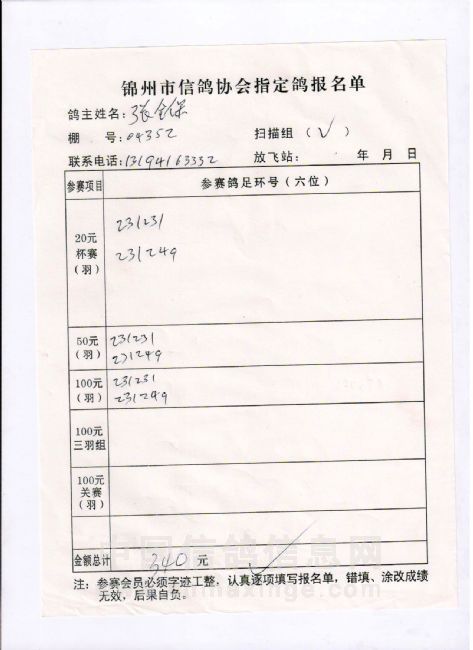 锦州市信鸽协会指定鸽报名单
鸽主姓名：张全保
棚 号：04352 扫描组 （√）
联系电话：13194163332 放飞站： 年 月 日
参赛项目 参赛鸽足环号（六位）
20元
杯赛
（羽）
231231
231249
50元
（羽）
231231
231249
100元
（羽）
231231
231249
100元
三羽组
100元
关赛
（羽）
金额总计 340 元
注：参赛会员必须字迹工整，认真逐项填写报名单，错填、涂改成绩
无效，后果自负。
中国信鸽信息网